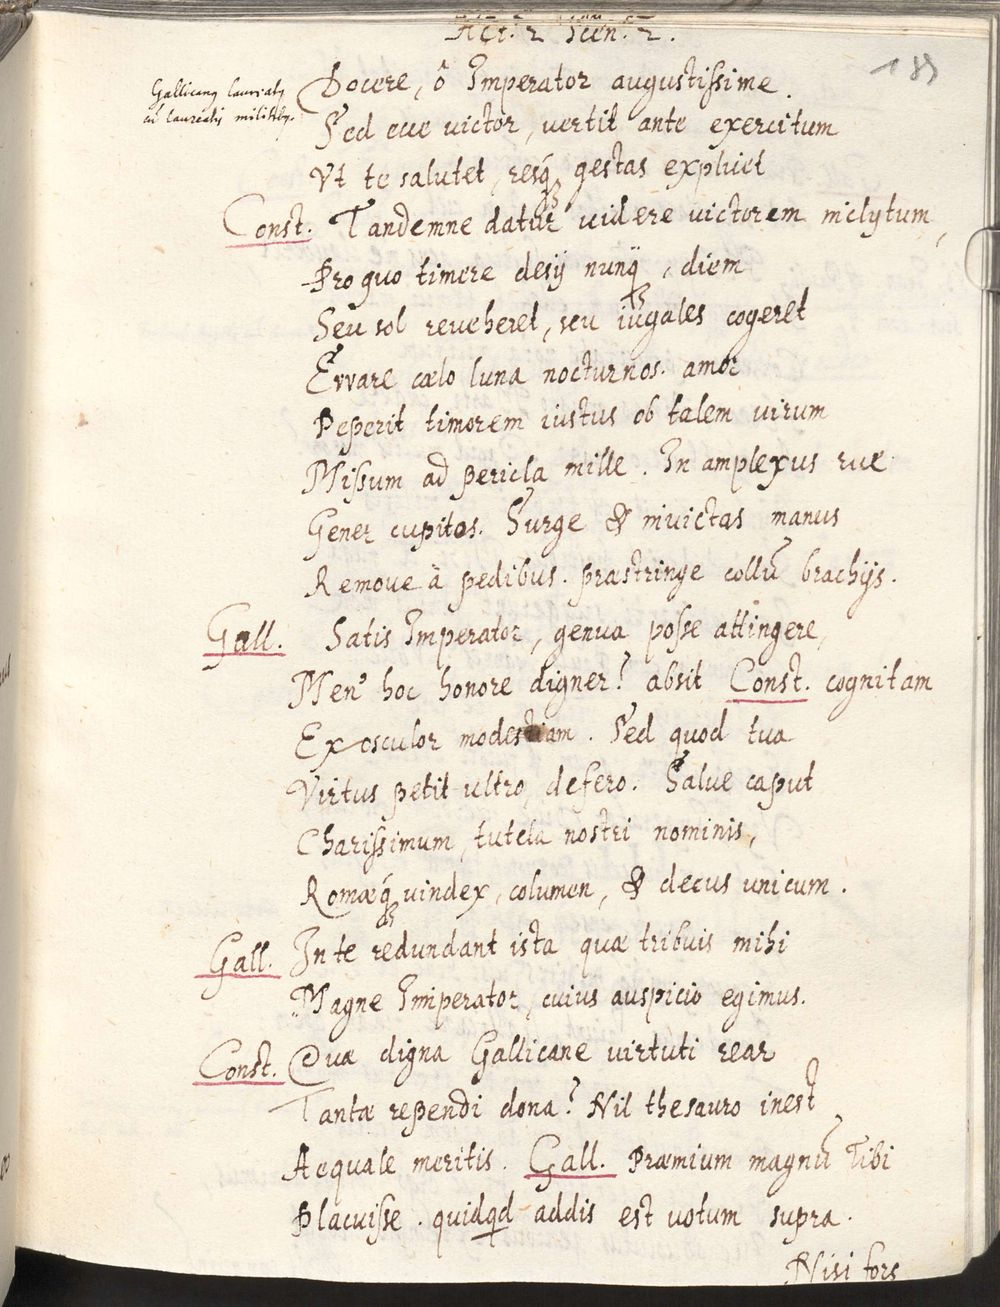 Act. 2 Scen. 2.
189
Docere, ô Imperator augustissime.
Gallicanus laureatus
cū laureatis militibus.
Sed ecce victor, vertit ante exercitum
Vt te salutet, resq́ gestas explicet
Const. Tandemne datur uidere victorem inclytum,
Pro quo timere desij nunq̃, diem
Seu sol reueheret, seu iugales cogeret
Errare cælo luna nocturnos. amor
Peperit timorem iustus ob talem uirum
Missum ad pericla mille. In amplexus rue
Gener cupitos. Surge & inuictas manus
Remoue à pedibus. præstringe collū brachijs.
Gall. Satis Imperator, genua posse attingere,
Men' hoc honore digner? absit Const. cognitam
Exosculor modestiam. Sed quod tua
Virtus petit ultro, defero. Salue caput
Charissimum, tutela nostri nominis,
Romæq́ uindex, columen, & decus unicum.
Gall. In te redundant ista quæ tribuis mihi
Magne Imperator, cuius auspicio egimus.
Const. Quæ digna Gallicane uirtuti rear
Tantæ rependi dona? Nil thesauro inest
Aequale meritis. Gall. Præmium magnū Tibi
Placuisse. quidqd addis est uotum supra.
Nisi fors